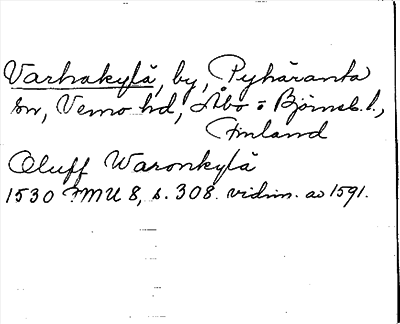 Varhakylä, by, Pyhäranta
sn, Vemo hd, Åbo o Björneb. l.,
Finland
Oluff Waronkylä
1530 FMU 8, s. 308. vidim. av 1591.